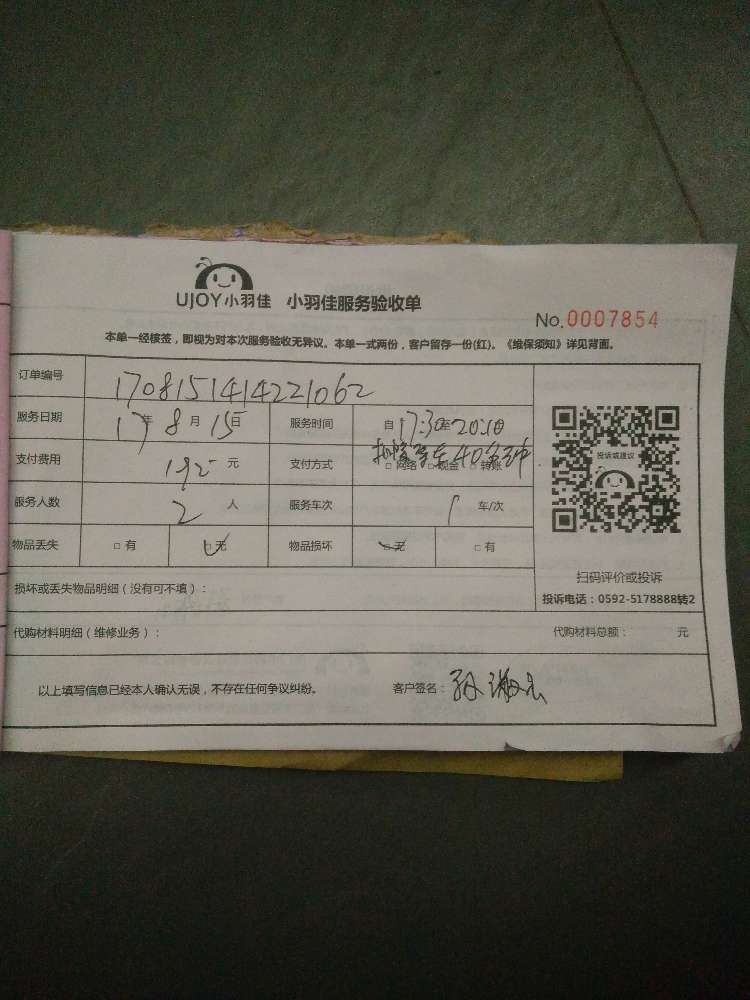 UJOY小羽佳 小羽佳服务验收单
No.0007854
本单一经核签，即视为对本次服务验收无异议。本单一式两份，客户留存一份(红)。《维保须知》详见背面。
订单编号 1708151414221062
服务日期 17年 8月 15日 服务时间 自17:30至20:10
支付费用 192元 支付方式 □网络 □现金 □转账
等车40多分钟
服务人数 2人 服务车次 1车/次
物品丢失 □有 □无 物品损坏 □无 □有
投诉或建议
扫码评价或投诉
投诉电话：0592-5178888转2
损坏或丢失物品明细（没有可不填）：
代购材料明细（维修业务）： 代购材料总额： 元
以上填写信息已经本人确认无误，不存在任何争议纠纷。 客户签名：